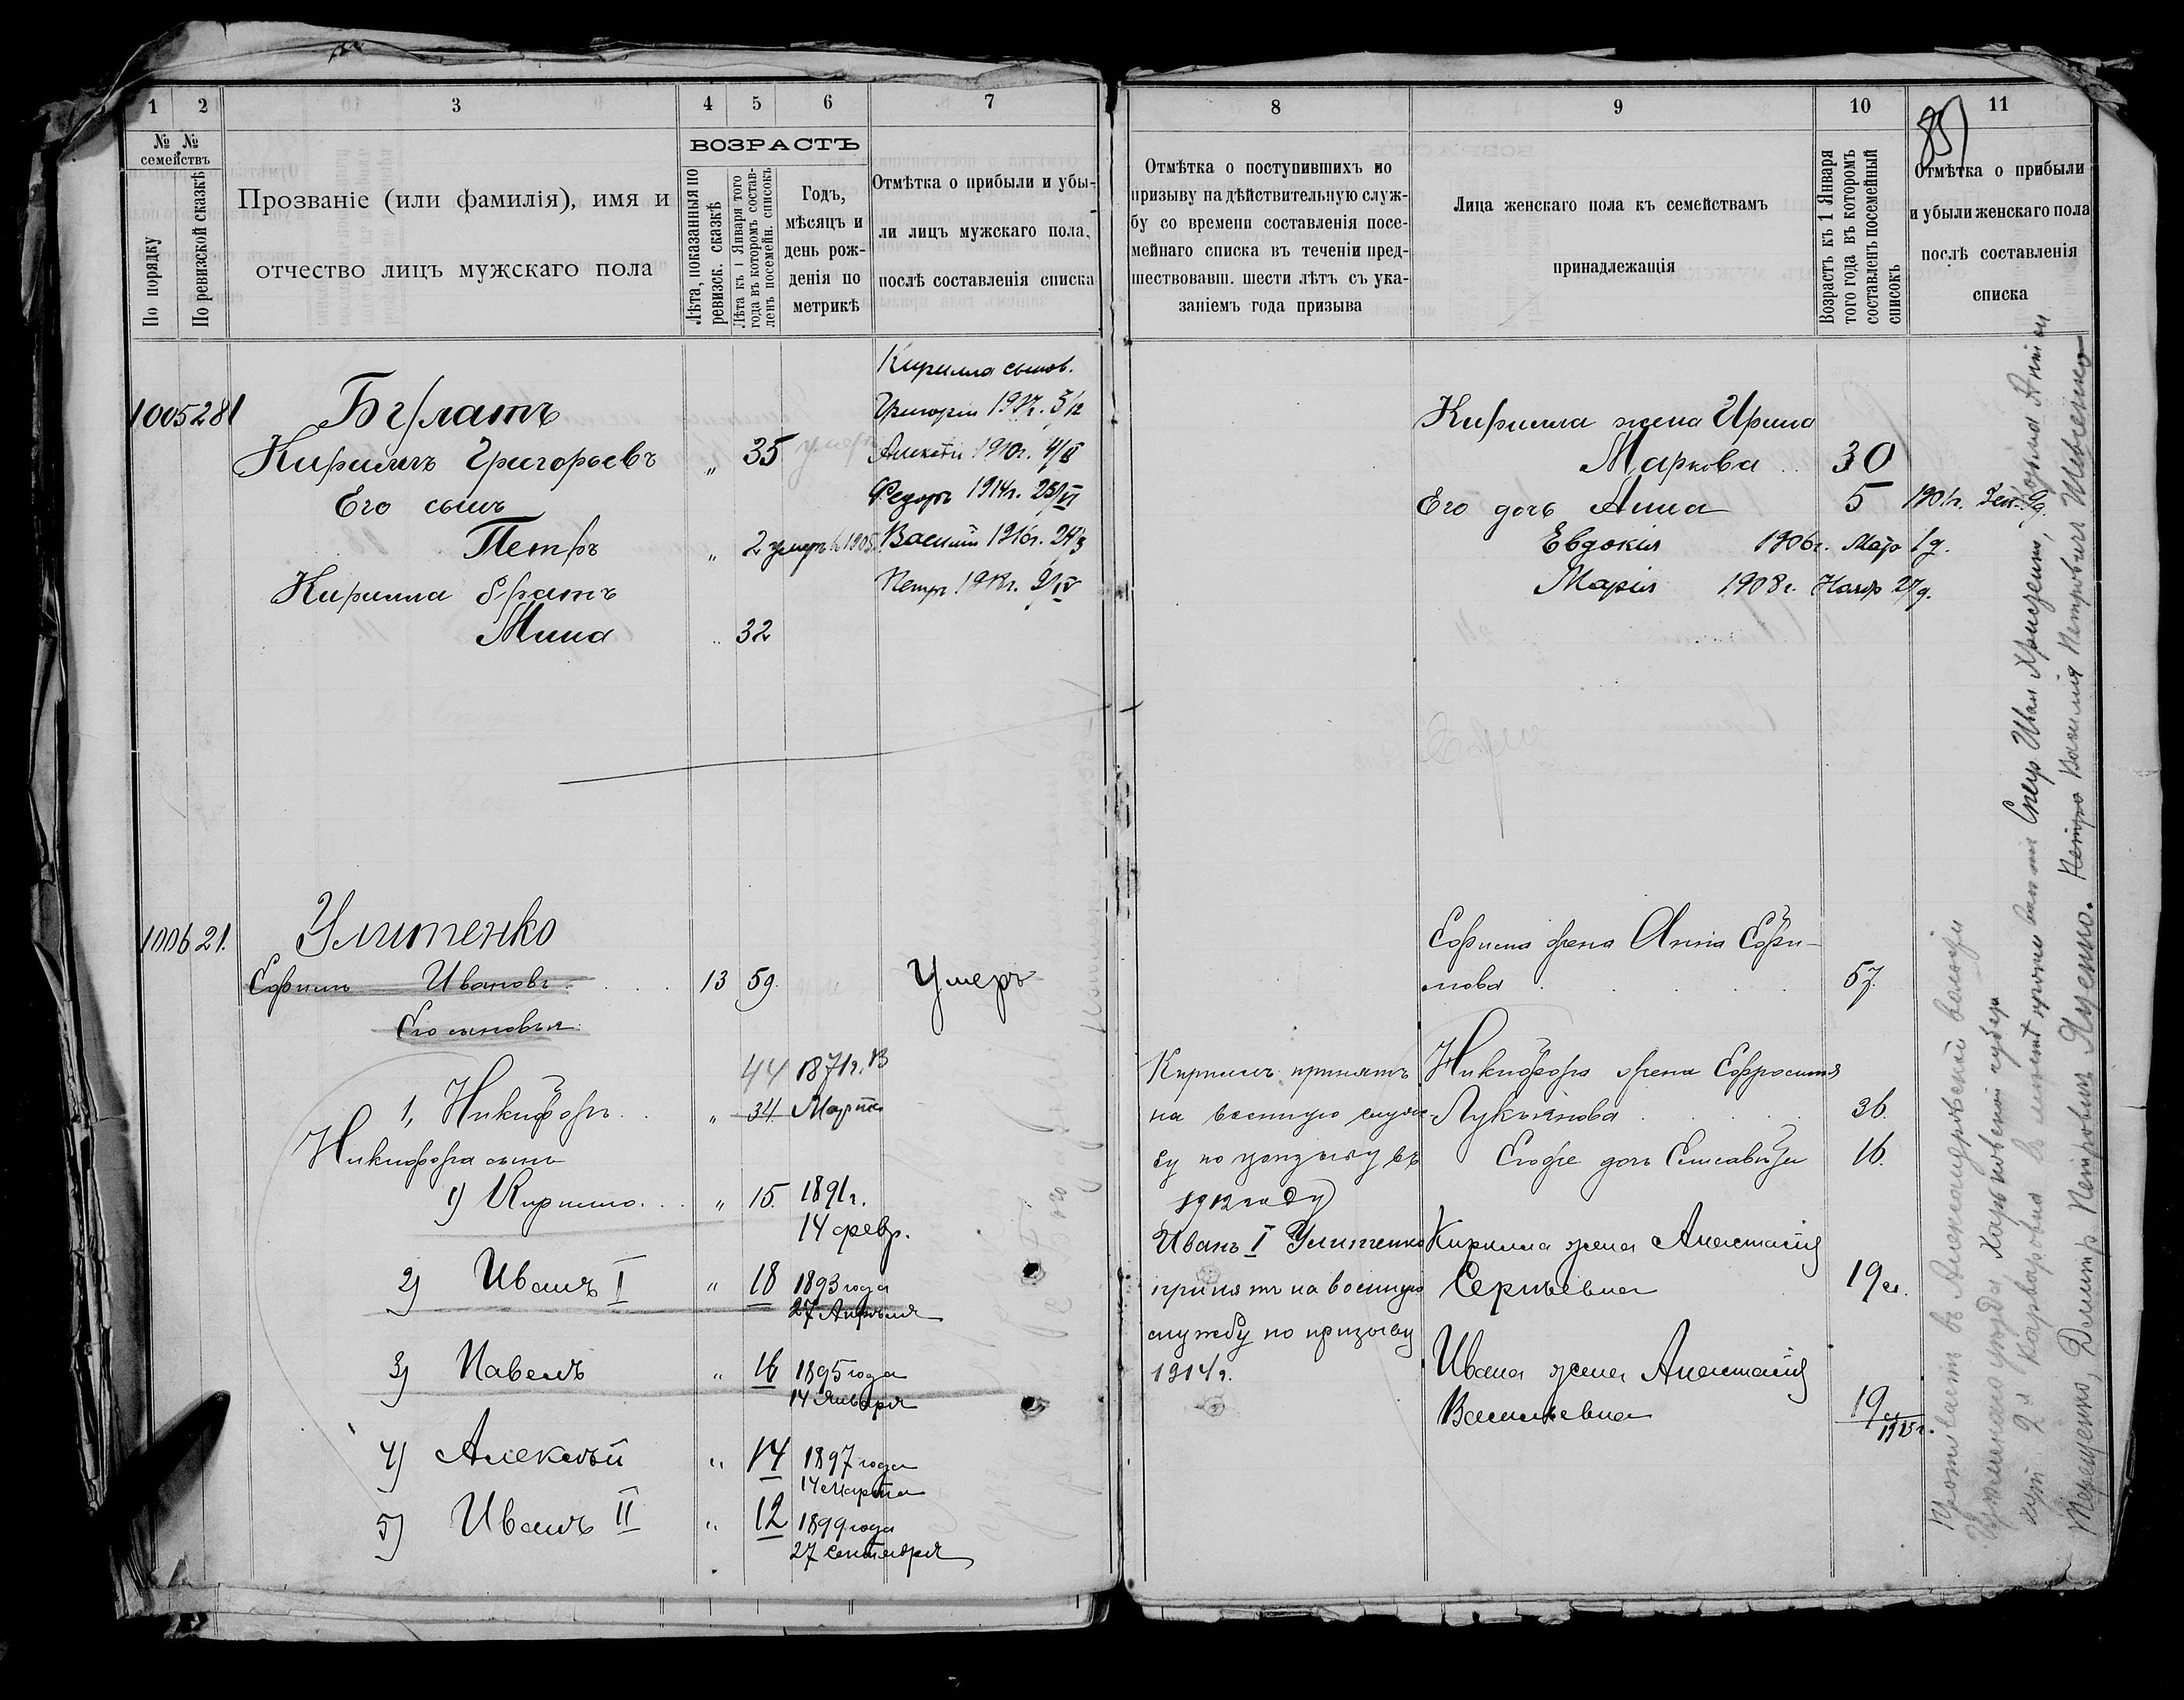 1 2 3 4 5 6 7
№ № семействъ
По порядку
По ревизской сказкѣ
Прозваніе (или фамилія), имя и
отчество лицъ мужскаго пола
ВОЗРАСТЪ
Лѣта, показанныя по
ревизск. сказкѣ
Лѣта къ 1 Января того
года въ которомъ состав-
ленъ посемейн. списокъ
Годъ,
мѣсяцъ и
день рож-
денія по
метрикѣ
Отмѣтка о прибыли и убы-
ли лицъ мужскаго пола,
послѣ составленія списка
1005 281
Кирилла сынов.
Григорій
Кириллъ Григорьевъ " 35
Алексѣй 1910г.
Его сынъ
Федоръ 1914г. 25/VI
Петръ " 2 умеръ
Василій 1916г.
Кирилла братъ
Петръ
Мина " 32
1006 21.
Улитенко
Ефимъ Ивановъ 13 59. Умеръ
Его сыновья:
44 1871г. 13
1, Никифоръ " 34 Марта
Никифора сынъ
1) Кирилло " 15. 1891г.
14 февр.
2) Иванъ I " 18 1893 года
27 Апрѣля
3) Павелъ " 16 1895 года
14 Января
4) Алексѣй " 14 1897 года
14 марта
5) Иванъ II " 12 1899 года
27 Сентября
8 9 10 11
85
Отмѣтка о поступившихъ по
призыву на дѣйствительную служ-
бу со времени составленія посе-
мейнаго списка въ теченіи пред-
шествовавш. шести лѣтъ съ ука-
заніемъ года призыва
Лица женскаго пола къ семействамъ
принадлежащія
Возрастъ къ 1 Января
того года въ которомъ
составленъ посемейный
списокъ
Отмѣтка о прибыли
и убыли женскаго пола
послѣ составленія
списка
Кирилла жена Ирина
Маркова 30
Его дочь Анна 5
Евдокія 1906г. Мар 1д.
Марія 1908г. Нояр
Ефима жена Анна Ефи-
мова 57.
Кириллъ принятъ
на военную служ-
бу по призыву въ
1912 году
Никифора жена Ефросинія
Лукьянова 36.
Его же дочь Елисавета 16.
Иванъ I Улитенко
принятъ на военную
службу по призыву
1914г.
Кирилла жена Анастасія
Сергѣевна 19 л.
Ивана жена Анастасія
Васильевна 19 л.
1915г.
Проживаетъ въ Александровской волости
уѣзда Харьковской губер
Терещенко, Димитр Петровичъ Яценко. Василія Петровича Шевченко